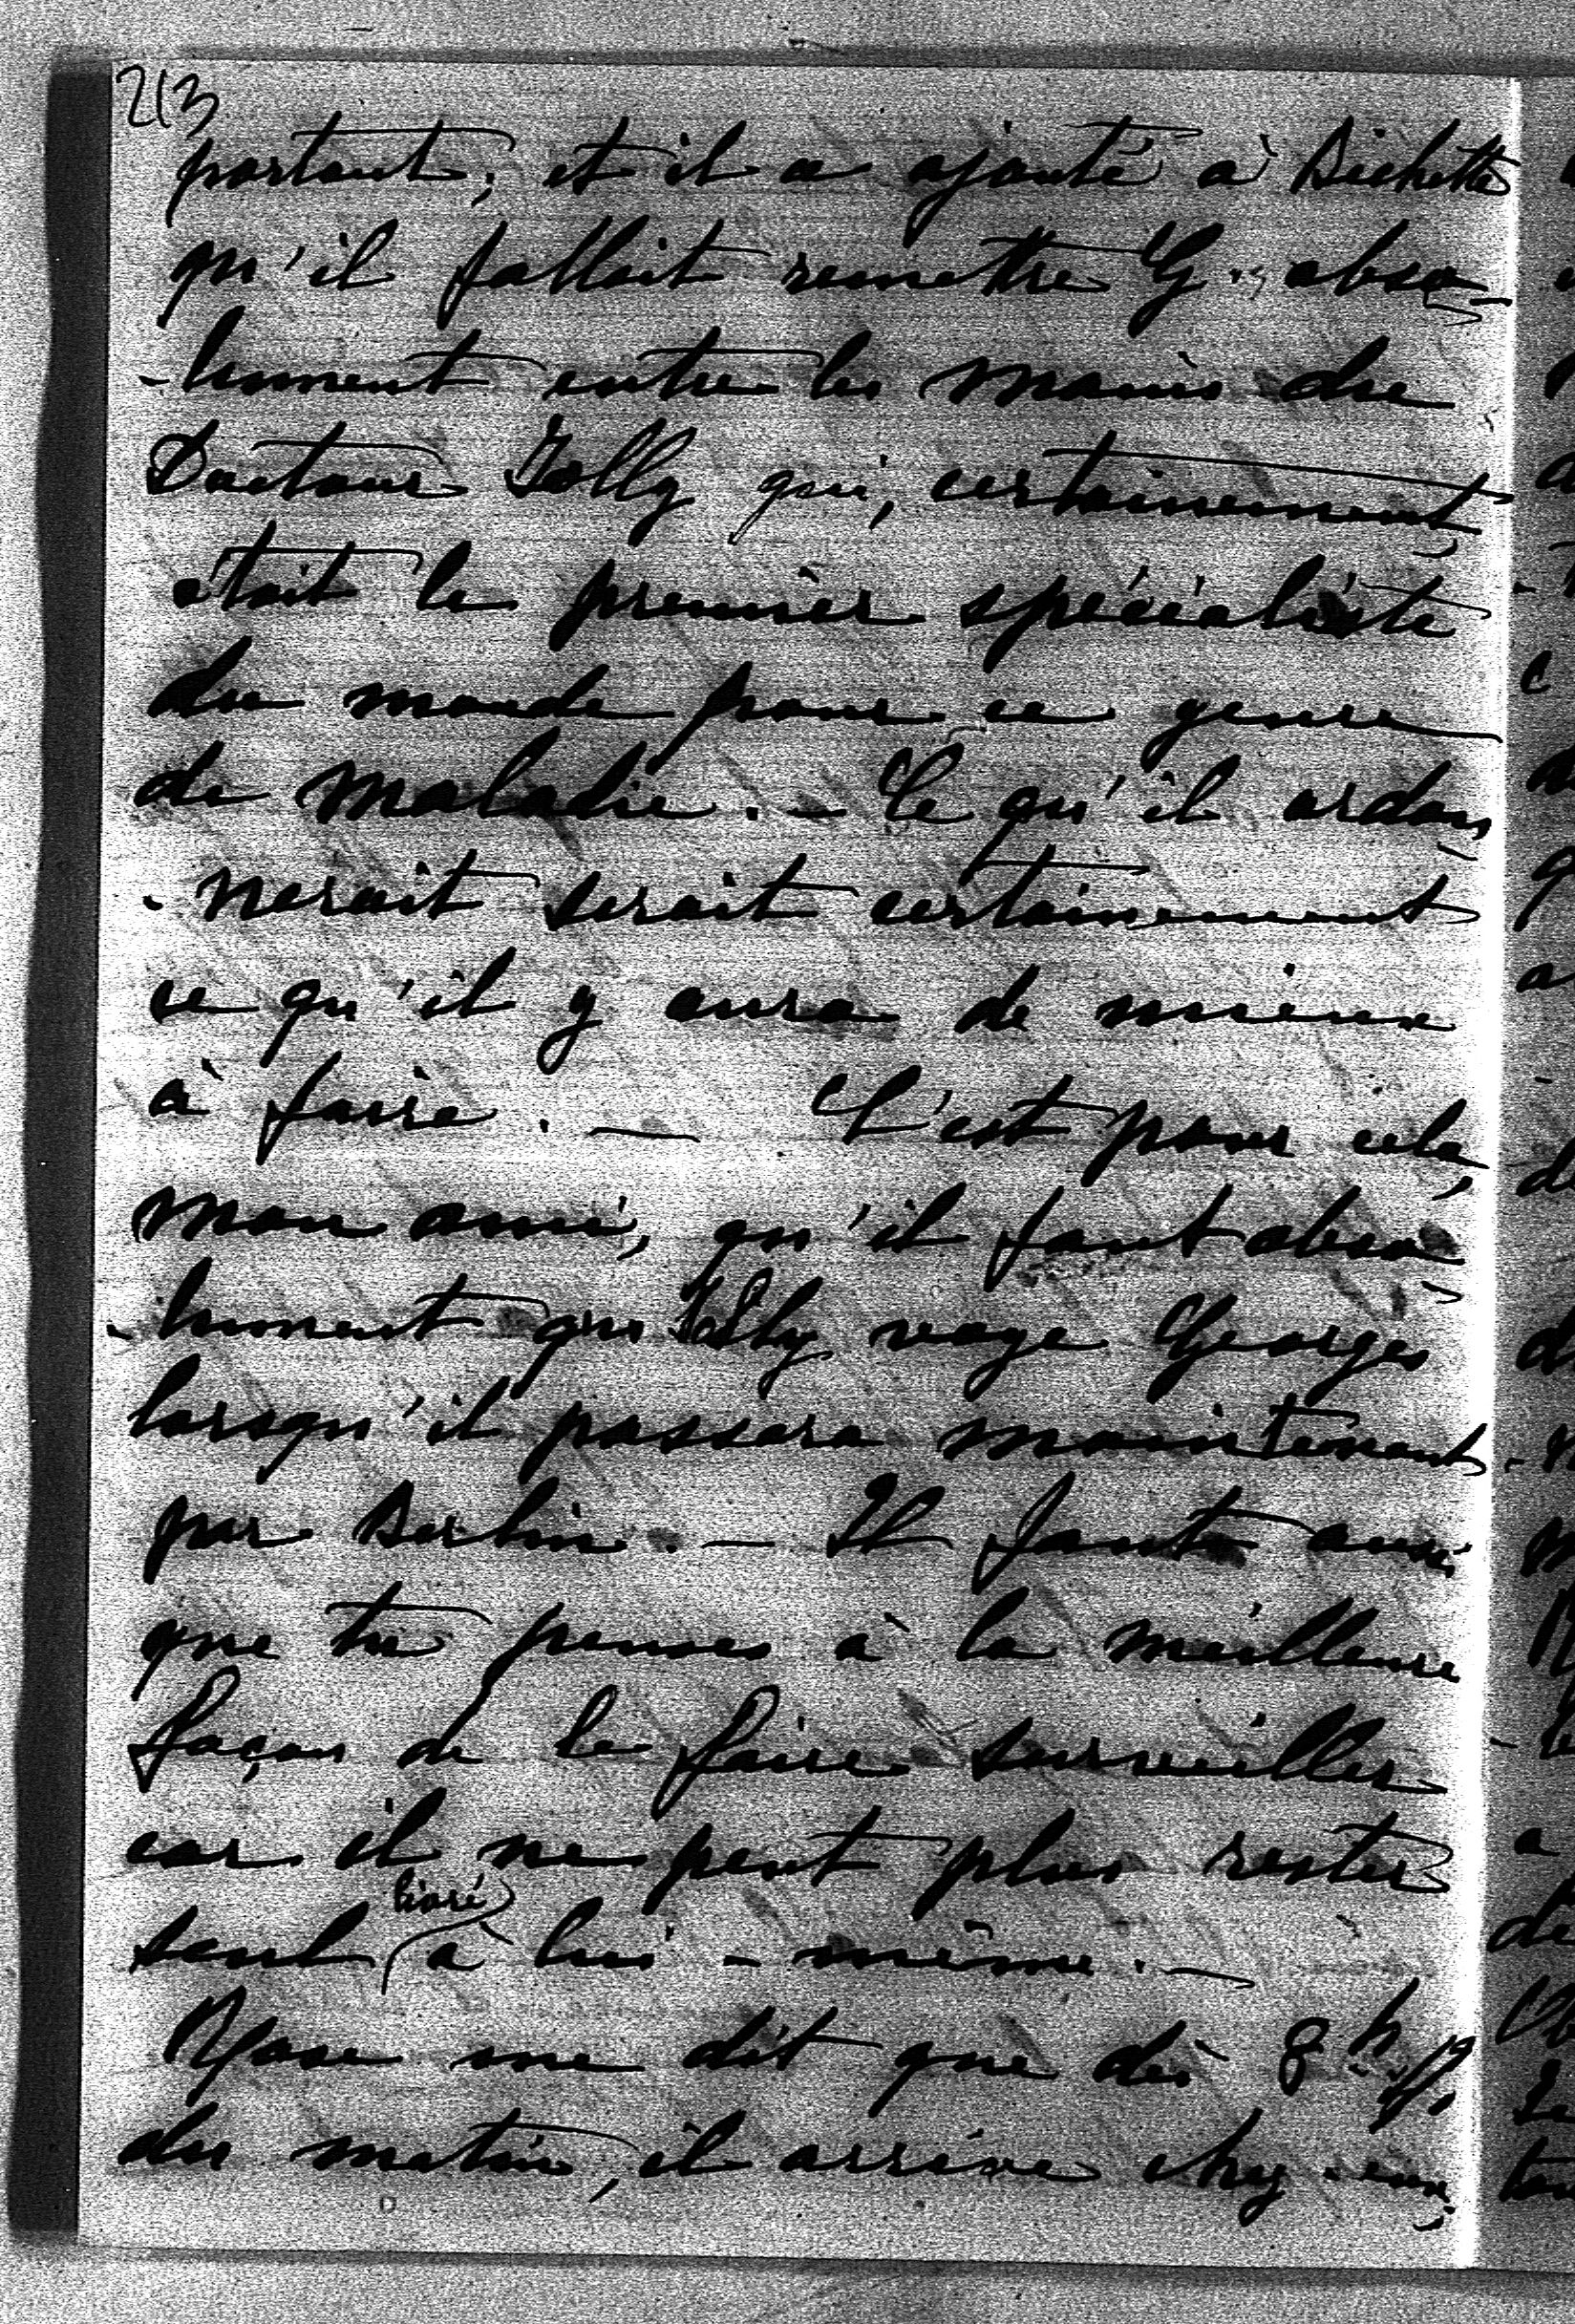 213
partout, et il a ajouté à Bichette
qu'il fallait remettre G. abso-
-lument entre les mains du
Docteur Jolly qui, certainement
était le premier spécialiste
du monde pour ce genre
de maladie. - Ce qu'il ordon
-nerait serait certainement
ce qu'il y aura de mieux
à faire. — C'est pour cela,
mon ami, qu'il faut abso-
-lument que Jolly voye Georges
lorsqu'il passera maintenant
par Berlin. - Il faut aussi
que tu penses à la meilleure
façon de le faire surveiller
car il ne peut plus rester
seul livré à lui-même. —
me dit que dès 8 h ½
du matin, il arrive chez eux,